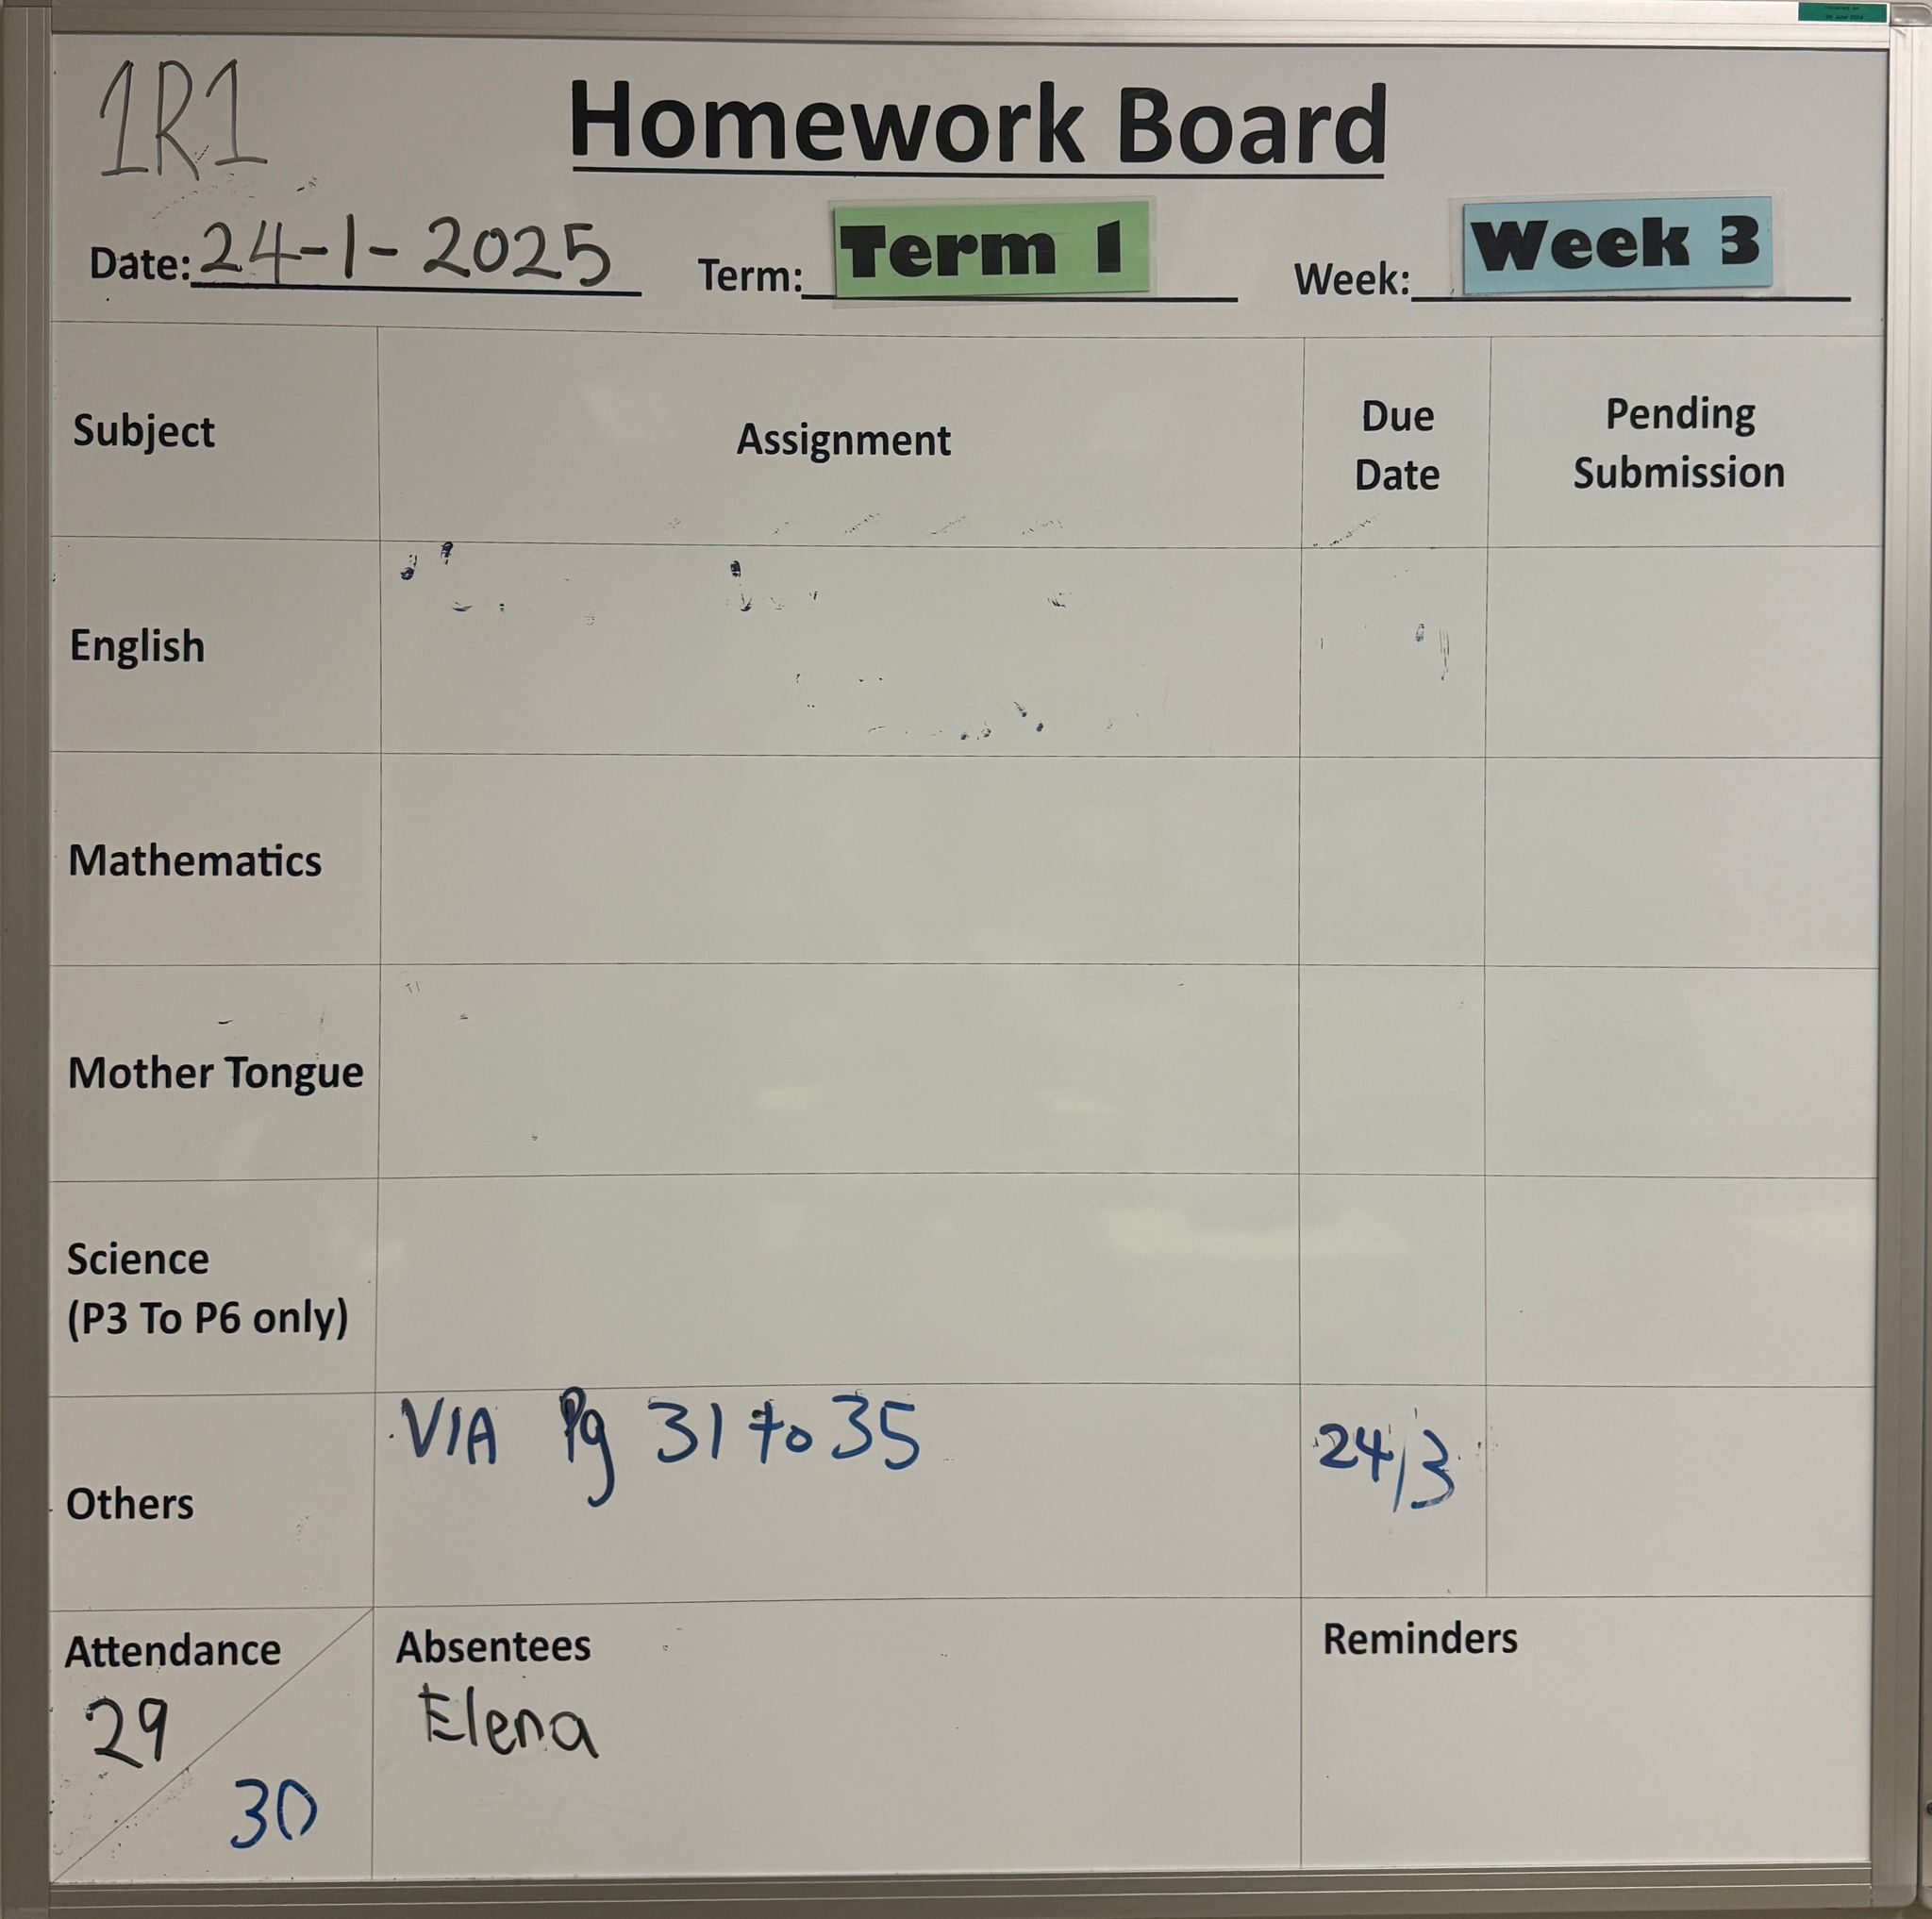 1R1
Homework Board
Date: 24-1-2025 Term: Term 1 Week: Week 3
Subject Assignment Due Date Pending Submission
English
Mathematics
Mother Tongue
Science
(P3 To P6 only)
Others VIA Pg 31 to 35 24/3
Attendance Absentees Reminders
29 Elena
30